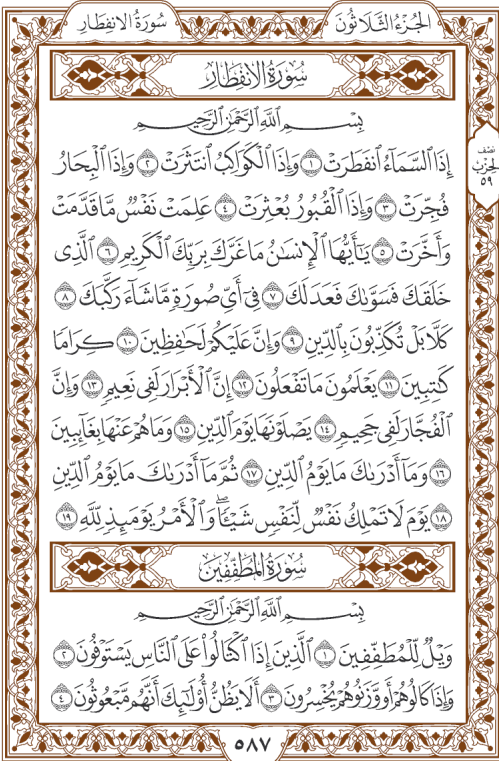 الجُزْءُ الثَّلَاثُونَ
سُورَةُ الانفِطَارِ
سُورَةُ الانفِطَارِ
بِسْمِ ٱللَّهِ ٱلرَّحْمَٰنِ ٱلرَّحِيمِ
إِذَا ٱلسَّمَآءُ ٱنفَطَرَتْ ١ وَإِذَا ٱلْكَوَاكِبُ ٱنتَثَرَتْ ٢ وَإِذَا ٱلْبِحَارُ
فُجِّرَتْ ٣ وَإِذَا ٱلْقُبُورُ بُعْثِرَتْ ٤ عَلِمَتْ نَفْسٌ مَّا قَدَّمَتْ
وَأَخَّرَتْ ٥ يَٰٓأَيُّهَا ٱلْإِنسَٰنُ مَا غَرَّكَ بِرَبِّكَ ٱلْكَرِيمِ ٦ ٱلَّذِى
خَلَقَكَ فَسَوَّىٰكَ فَعَدَلَكَ ٧ فِىٓ أَىِّ صُورَةٍ مَّا شَآءَ رَكَّبَكَ ٨
كَلَّا بَلْ تُكَذِّبُونَ بِٱلدِّينِ ٩ وَإِنَّ عَلَيْكُمْ لَحَٰفِظِينَ ١٠ كِرَامًا
كَٰتِبِينَ ١١ يَعْلَمُونَ مَا تَفْعَلُونَ ١٢ إِنَّ ٱلْأَبْرَارَ لَفِى نَعِيمٍ ١٣ وَإِنَّ
ٱلْفُجَّارَ لَفِى جَحِيمٍ ١٤ يَصْلَوْنَهَا يَوْمَ ٱلدِّينِ ١٥ وَمَا هُمْ عَنْهَا بِغَآئِبِينَ
١٦ وَمَآ أَدْرَىٰكَ مَا يَوْمُ ٱلدِّينِ ١٧ ثُمَّ مَآ أَدْرَىٰكَ مَا يَوْمُ ٱلدِّينِ
١٨ يَوْمَ لَا تَمْلِكُ نَفْسٌ لِّنَفْسٍ شَيْـًٔا ۖ وَٱلْأَمْرُ يَوْمَئِذٍ لِّلَّهِ ١٩
سُورَةُ المُطَفِّفِينَ
بِسْمِ ٱللَّهِ ٱلرَّحْمَٰنِ ٱلرَّحِيمِ
وَيْلٌ لِّلْمُطَفِّفِينَ ١ ٱلَّذِينَ إِذَا ٱكْتَالُوا۟ عَلَى ٱلنَّاسِ يَسْتَوْفُونَ ٢
وَإِذَا كَالُوهُمْ أَو وَّزَنُوهُمْ يُخْسِرُونَ ٣ أَلَا يَظُنُّ أُو۟لَٰٓئِكَ أَنَّهُم مَّبْعُوثُونَ ٤
نِصْف
الحِزْب
٥٩
٥٨٧